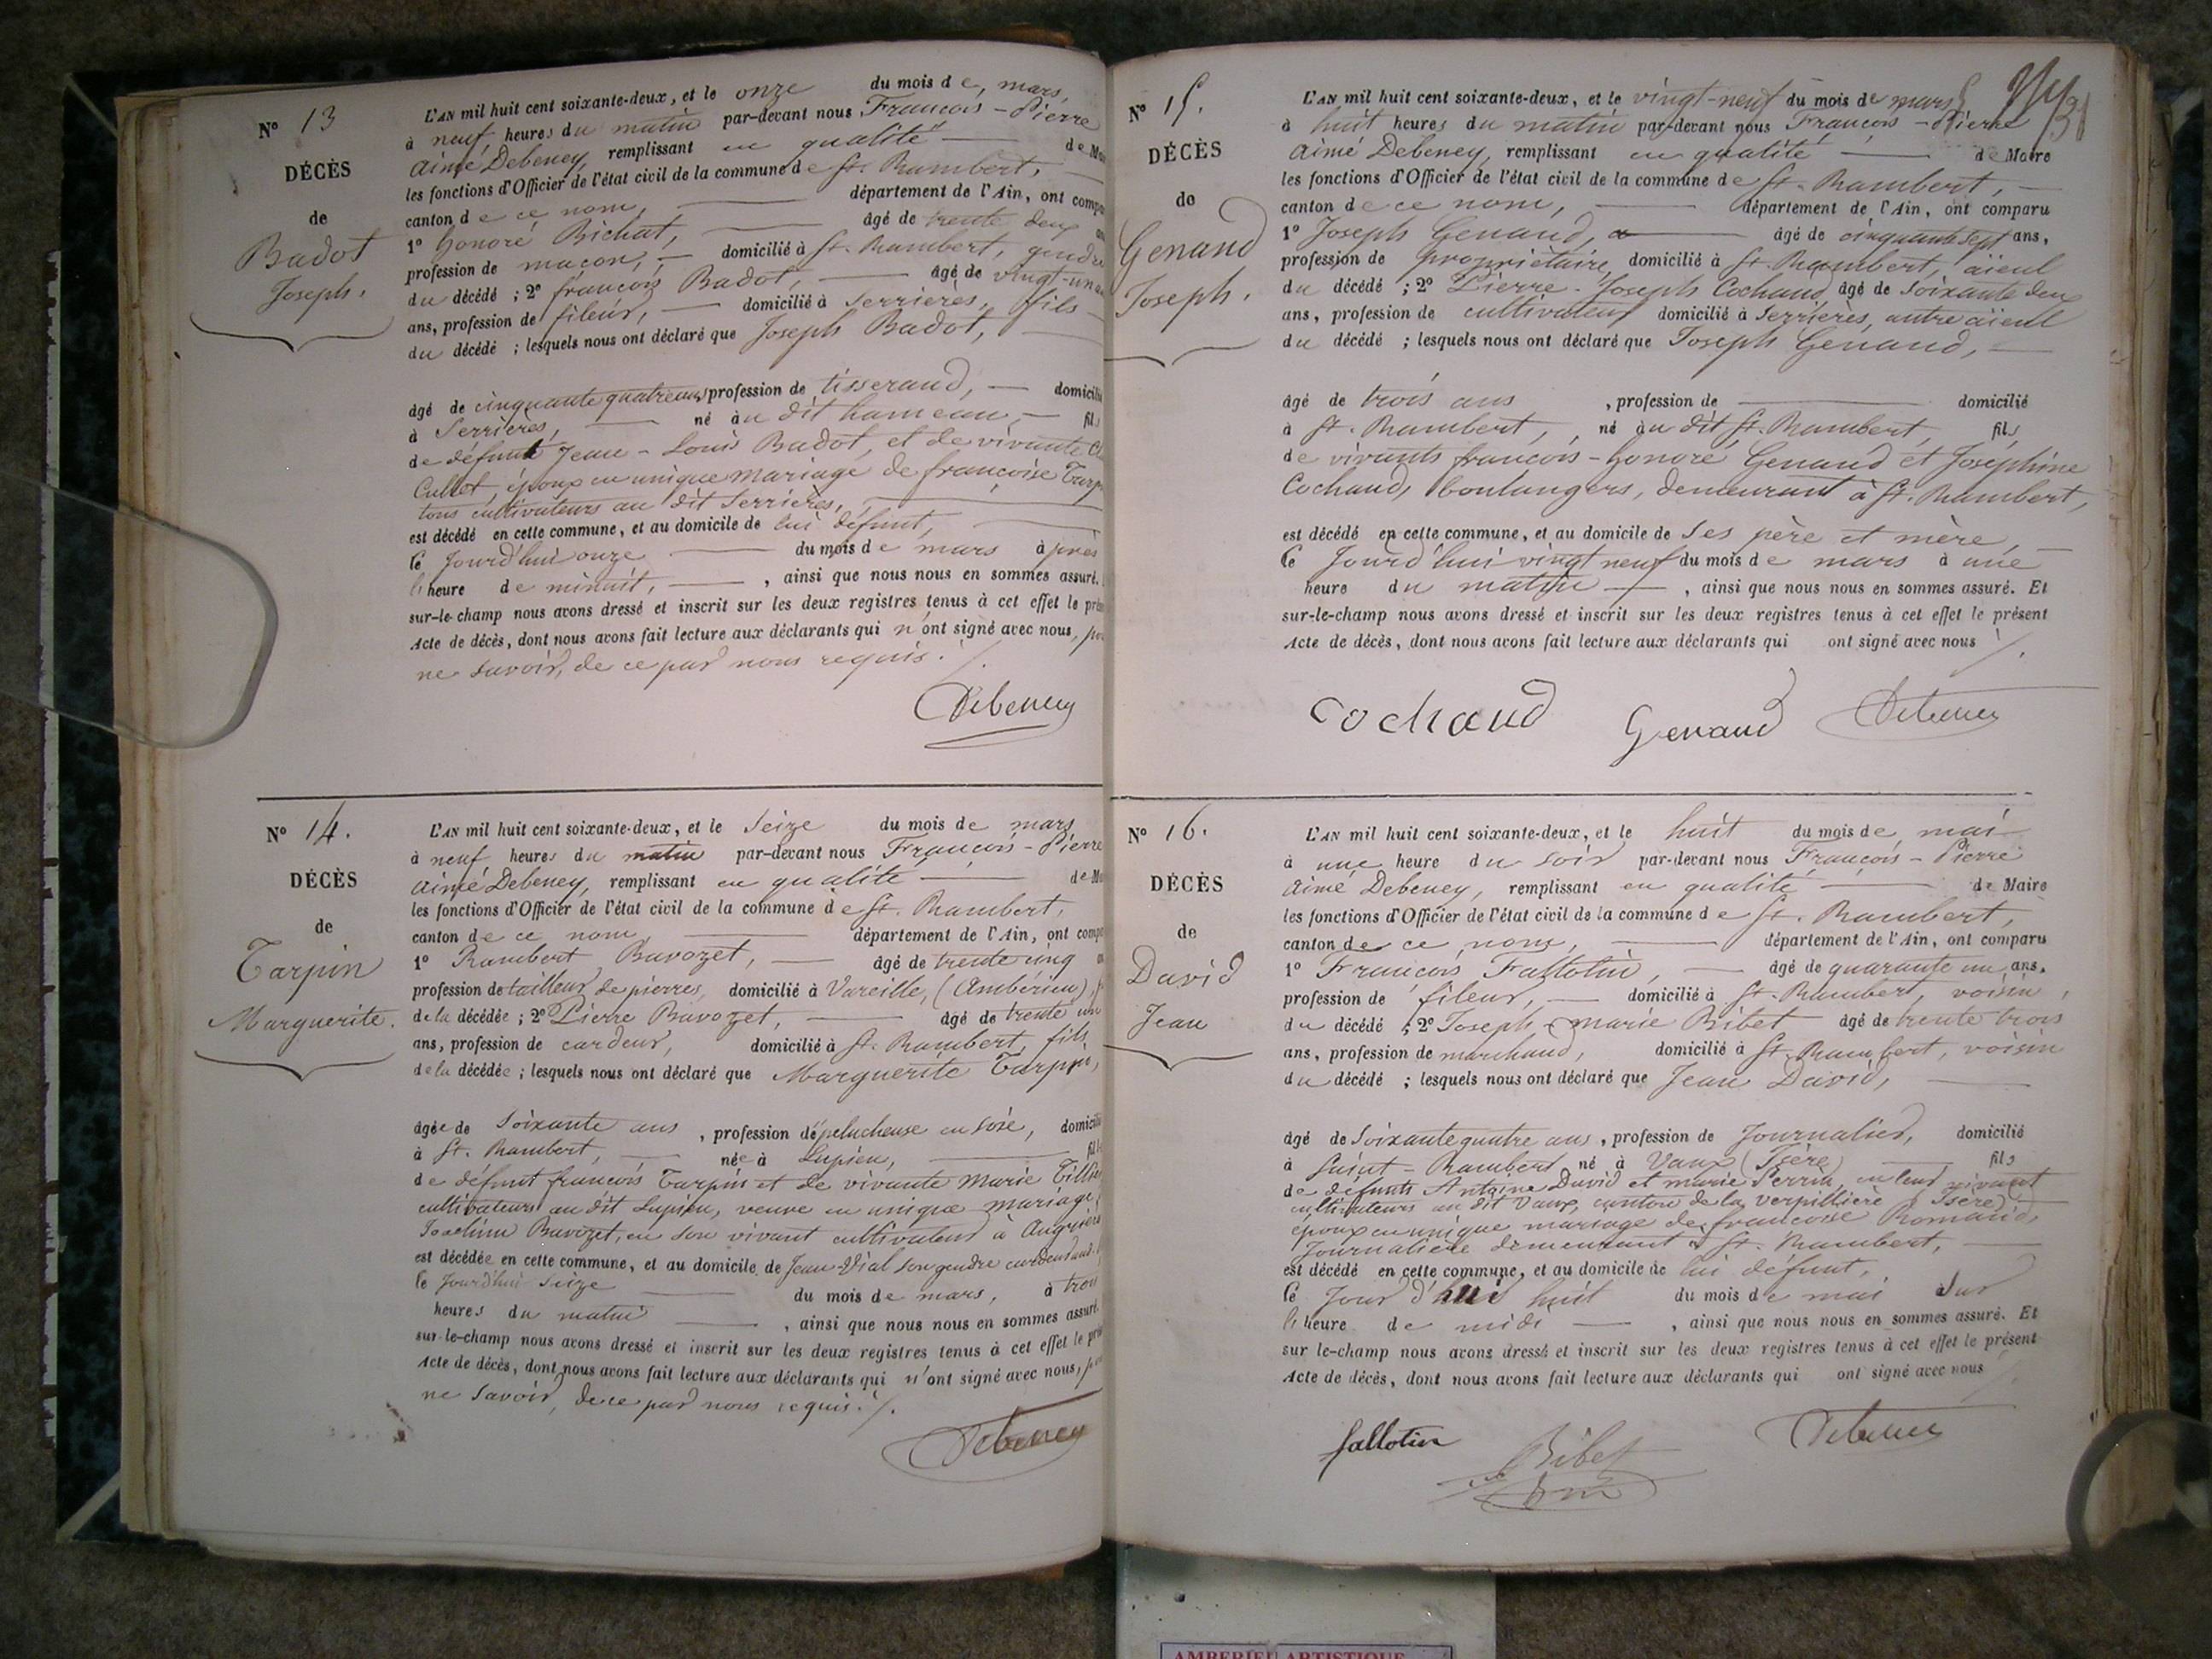 N° 13
DÉCÈS
de
Badot
Joseph.
L'AN mil huit cent soixante-deux, et le onze du mois de mars,
à neuf heures du matin par-devant nous François-Pierre
Aimé Debeney, remplissant en qualité de
les fonctions d'Officier de l'état civil de la commune de St. Rambert,
canton de ce nom, département de l'Ain, ont
1° Honoré Bichat, âgé de trente deux
profession de maçon, domicilié à St. Rambert, gendre
du décédé ; 2° françois Badot, âgé de vingt-un
ans, profession de fileur, domicilié à Serrières, fils
du décédé ; lesquels nous ont déclaré que Joseph Badot,
âgé de cinquante quatre ans, profession de tisserand,
à Serrières, né au dit hameau, fils
de défunt Jean-Louis Badot, et de vivante
Cullet, époux en unique mariage de françoise
tous cultivateurs au dit Serrières,
est décédé en cette commune, et au domicile de lui défunt,
le jourd'hui onze du mois de mars à près
l'heure de minuit, , ainsi que nous nous en sommes assuré.
sur-le-champ nous avons dressé et inscrit sur les deux registres tenus à cet effet le
Acte de décès, dont nous avons fait lecture aux déclarants qui n'ont signé avec nous,
ne savoir, de ce par nous requis ./.
Debeney
N° 14.
DÉCÈS
de
Tarpin
Marguerite.
L'AN mil huit cent soixante-deux, et le Seize du mois de mars
à neuf heures du matin par-devant nous François-Pierre
Aimé Debeney, remplissant en qualité de
les fonctions d'Officier de l'état civil de la commune de St. Rambert,
canton de ce nom, département de l'Ain, ont
1° Rambert Bavozet, âgé de trente cinq
profession de tailleur de pierres, domicilié à Vareille, (Ambérieu),
de la décédée ; 2° Pierre Bavozet, âgé de trente un
ans, profession de cardeur, domicilié à St. Rambert, fils
de la décédée ; lesquels nous ont déclaré que Marguerite Tarpin,
âgée de Soixante ans , profession d'épelucheuse en soie,
à St. Rambert, née à Lupieu,
de défunt françois Tarpin et de vivante Marie
cultivateurs au dit Lupieu, veuve en unique mariage
Joachim Bavozet, en son vivant cultivateur à
est décédée en cette commune, et au domicile de Jean Vial son gendre
le jourd'hui Seize du mois de mars, à trois
heures du matin , ainsi que nous nous en sommes assuré.
sur-le-champ nous avons dressé et inscrit sur les deux registres tenus à cet effet le
Acte de décès, dont nous avons fait lecture aux déclarants qui n'ont signé avec nous,
ne savoir, de ce par nous requis ./.
Debeney
N° 15.
DÉCÈS
de
Genand
Joseph.
L'AN mil huit cent soixante-deux, et le vingt-neuf du mois de mars
à huit heures du matin par-devant nous François-Pierre
Aimé Debeney, remplissant en qualité de Maire
les fonctions d'Officier de l'état civil de la commune de St. Rambert,
canton de ce nom, département de l'Ain, ont comparu
1° Joseph Genand, âgé de cinquante sept ans,
profession de propriétaire, domicilié à St. Rambert, aïeul
du décédé ; 2° Pierre-Joseph Cochaud, âgé de soixante deux
ans, profession de cultivateur domicilié à Serrières, autre aïeul
du décédé ; lesquels nous ont déclaré que Joseph Genand,
âgé de trois ans , profession de domicilié
à St. Rambert, , né au dit St. Rambert, fils
de vivants françois-honoré Genand et Joséphine
Cochaud, boulangers, demeurant à St. Rambert,
est décédé en cette commune, et au domicile de Ses père et mère,
le Jourd'hui vingt neuf du mois de mars à une
heure du matin , ainsi que nous nous en sommes assuré. Et
sur-le-champ nous avons dressé et inscrit sur les deux registres tenus à cet effet le présent
Acte de décès, dont nous avons fait lecture aux déclarants qui ont signé avec nous ./.
Cochaud Genand Debeney
N° 16.
DÉCÈS
de
David
Jean
L'AN mil huit cent soixante-deux, et le huit du mois de mai
à une heure du soir par-devant nous François-Pierre
Aimé Debeney, remplissant en qualité de Maire
les fonctions d'Officier de l'état civil de la commune de St. Rambert,
canton de ce nom, département de l'Ain, ont comparu
1° François Fallotin, âgé de quarante un ans,
profession de fileur, domicilié à St. Rambert, voisin
du décédé ; 2° Joseph-marie Bibet âgé de trente trois
ans, profession de marchand, domicilié à St. Rambert, voisin
du décédé ; lesquels nous ont déclaré que Jean David,
âgé de Soixante quatre ans, profession de Journalier, domicilié
à Saint-Rambert né à Vaux (Isère) fils
de défunts Antoine David et marie Perrin, en leur vivant
cultivateurs au dit Vaux, canton de la Verpillière (Isère)
époux en unique mariage de françoise Romand,
Journalière demeurant à St. Rambert,
est décédé en cette commune, et au domicile de lui défunt,
le Jour d'hui huit du mois de mai à Sur
l'heure de midi , ainsi que nous nous en sommes assuré. Et
sur le-champ nous avons dressé et inscrit sur les deux registres tenus à cet effet le présent
Acte de décès, dont nous avons fait lecture aux déclarants qui ont signé avec nous
fallotin Bibet Debeney
AMBERIEU ARTISTIQUE